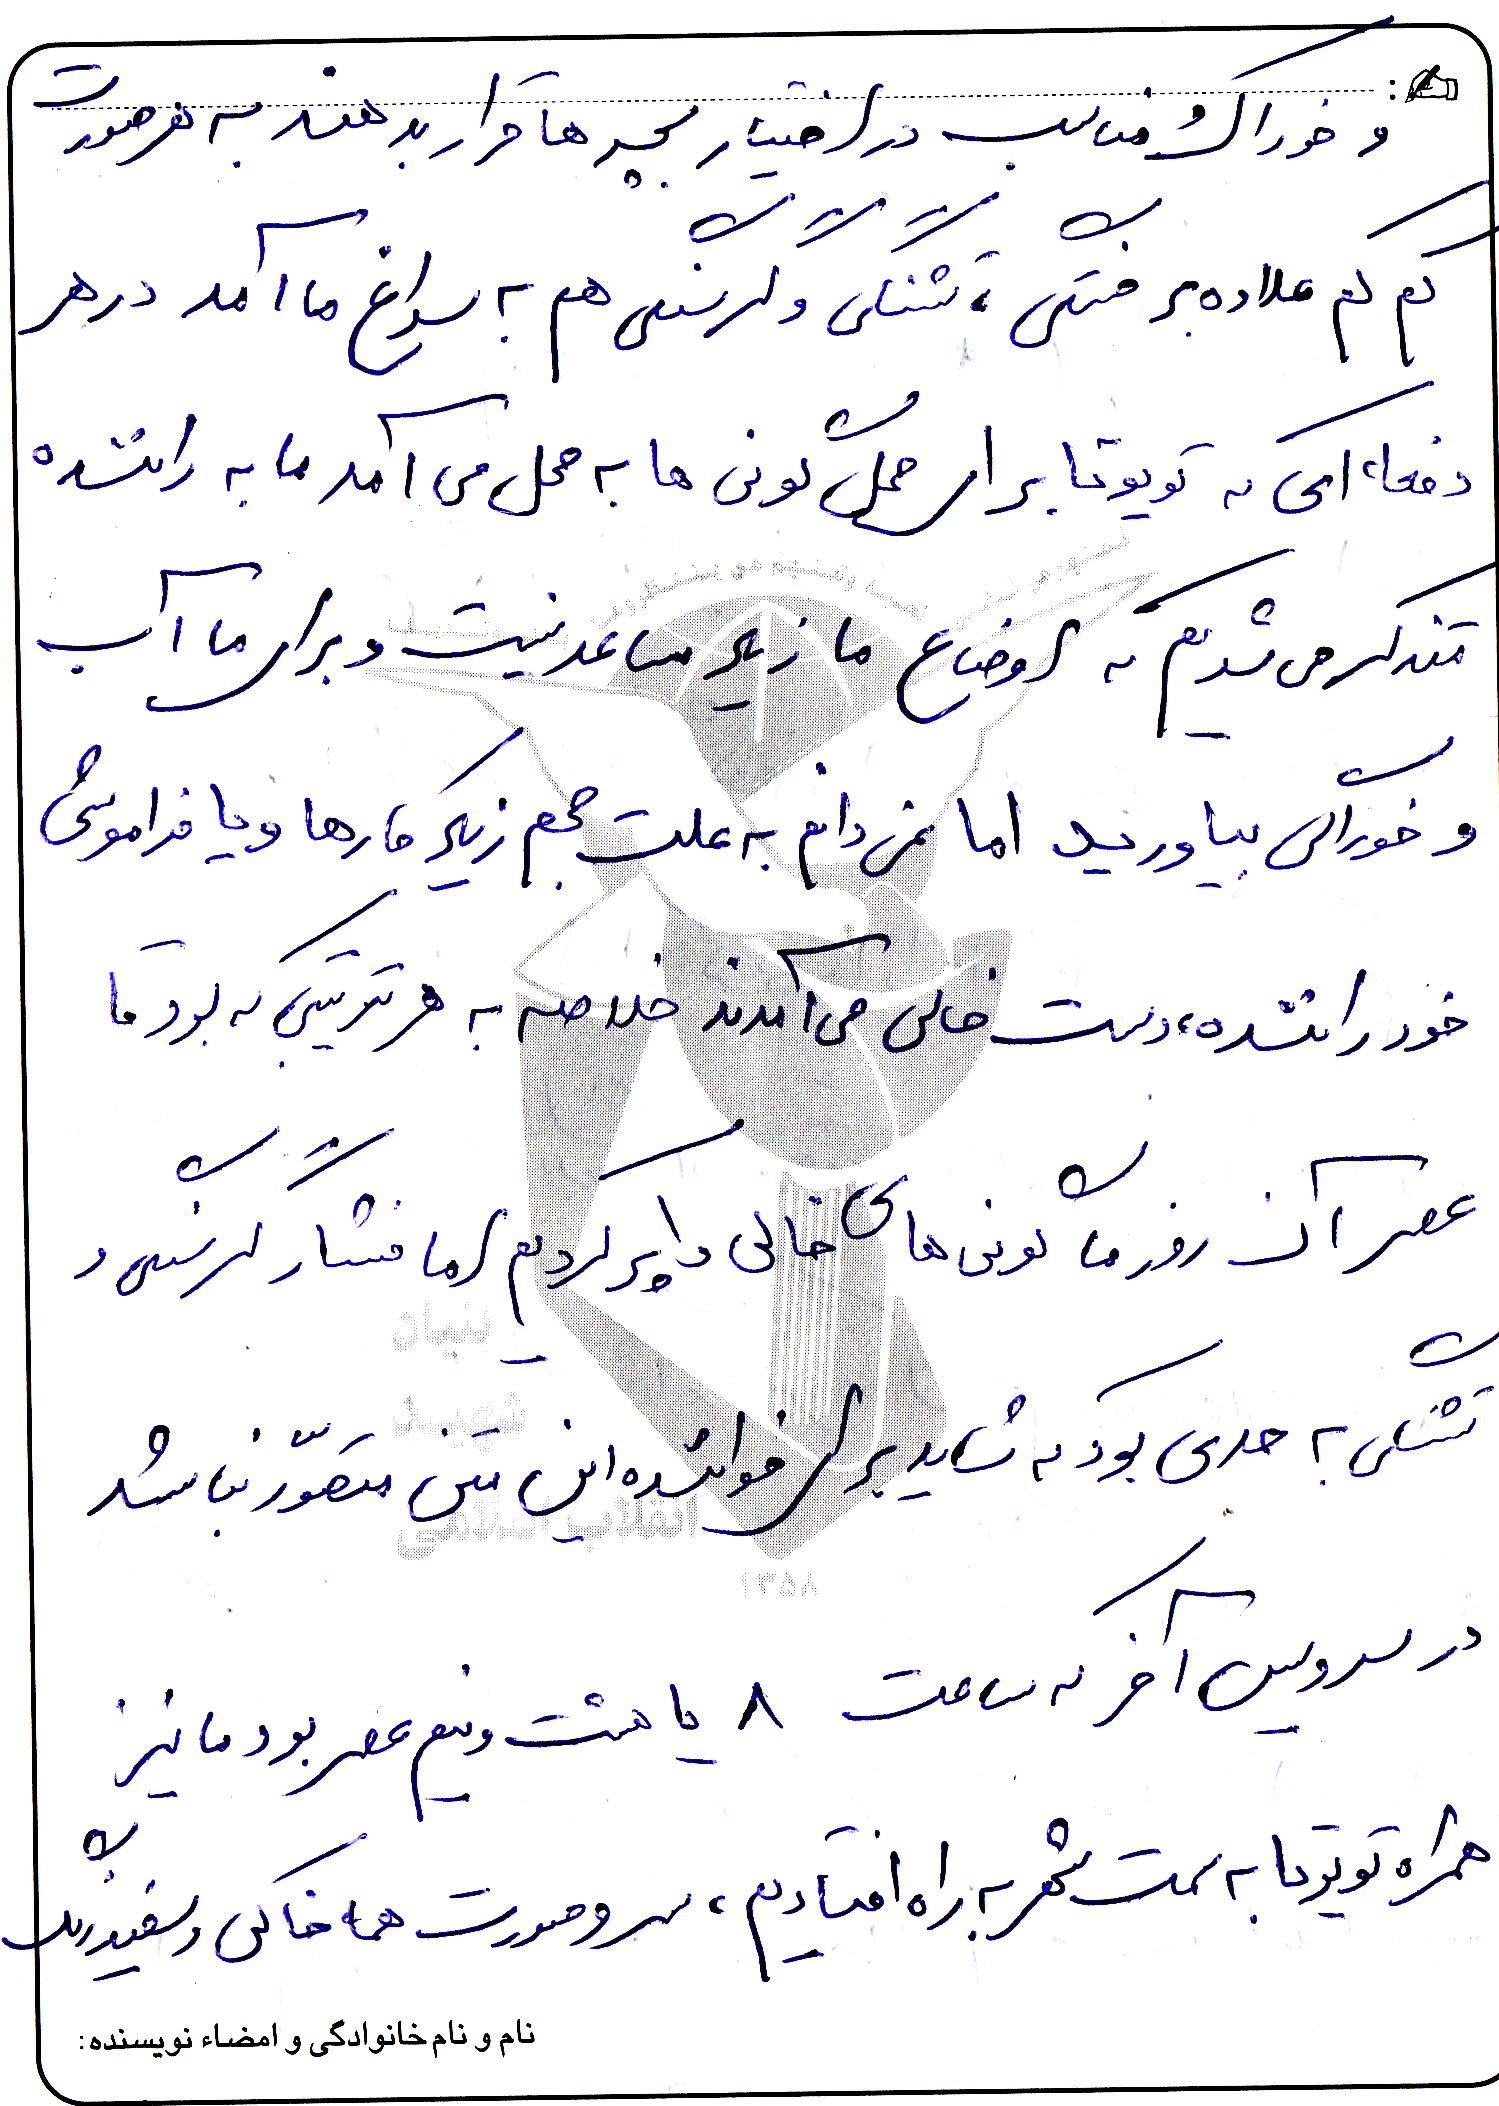 و خوراک مناسب در اختیار بچه ها قرار بدهند به هر صورت
کم کم علاوه بر خستگی ، تشنگی و گرسنگی هم به سراغ ما آمد در هر
دفعه ای که تویوتا برای حمل گونی ها به محل می آمد ما به راننده
متذکر می شدیم که اوضاع ما زیاد مساعد نیست و برای ما آب
و خوراکی بیاورید اما نمی دانم به علت حجم زیاد کارها و یا فراموشی
خود راننده، دست خالی می آمدند خلاصه به هر ترتیبی که بود تا
عصر آن روز ما گونی های خالی را پر کردیم اما فشار گرسنگی و
تشنگی به حدی بود که شاید برای خواننده این متن متصوّر نباشد
در سرویس آخر که ساعت ۸ یا هشت و نیم عصر بود ما نیز
همراه تویوتا به سمت شهر به راه افتادیم ، سر و صورت همه خاکی و سفید رنگ
نام و نام خانوادگی و امضاء نویسنده:
بنیاد
شهید
انقلاب اسلامی
۱۳۵۸